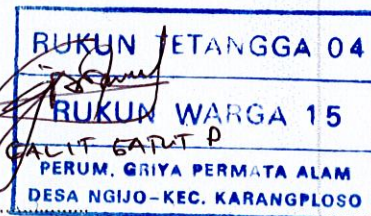 RUKUN TETANGGA 04
RUKUN WARGA 15
GALIT GATUT P
PERUM. GRIYA PERMATA ALAM
DESA NGIJO-KEC. KARANGPLOSO